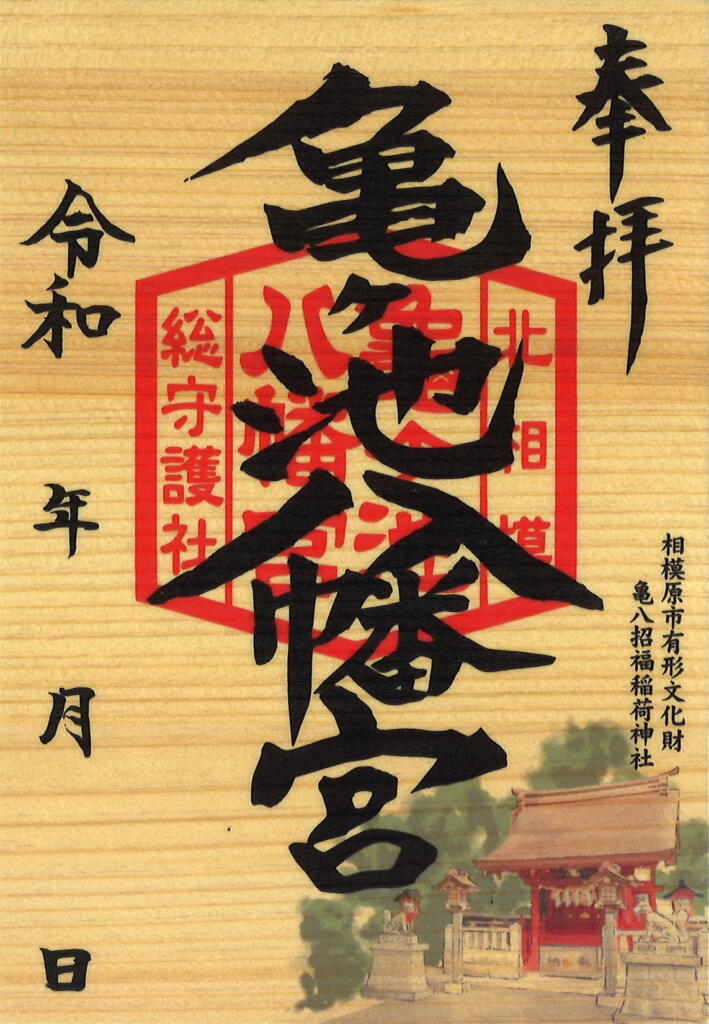 奉拝
相模原市有形文化財
亀八招福稲荷神社
亀ヶ池八幡宮
北相模
龜ケ池
八幡宮
総守護社
令和　年　月　日